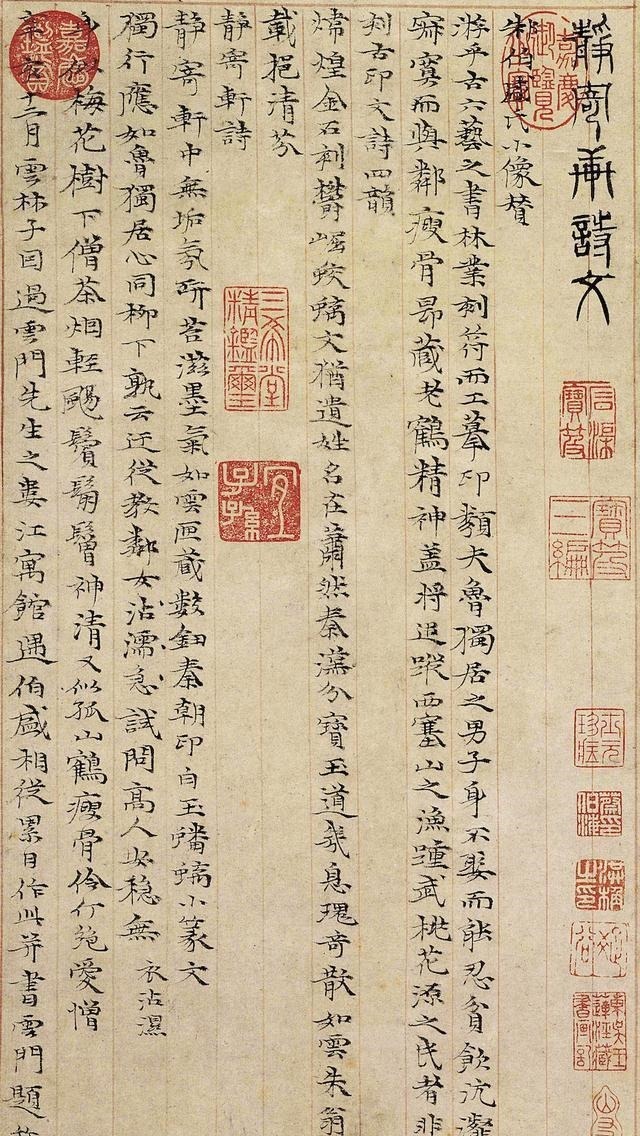 靜寄軒詩文
朱伯盛氏小像贊
游乎古六藝之書林業刻符而工摹印類夫魯獨居之男子身不娶而能忍貧飲沆瀣
寂寞而與鄰瘦骨昂藏老鶴精神蓋將追蹤西塞山之漁踵武桃花源之民者非
刻古印文詩四韻
煒煌金石刻鬱崛蛟螭文猶遺姓名在蕭然秦漢分寶玉道幾息瑰奇散如雲朱翁
戴挹清芬
靜寄軒詩
靜寄軒中無垢氛研苔滋墨氣如雲匣藏數鈕秦朝印白玉蟠螭小篆文
獨行應如魯獨居心同柳下孰云迂從教鄰女沾濡急試問高人安穩無
衣沾濕
身似梅花樹下僧茶烟輕颺鬢鬅鬙神清又似孤山鶴瘦骨伶仃絕愛憎
十二月雲林子因過雲門先生之婁江寓館遇伯盛相從累日作此并書雲門題
嘉慶御覽之寶
嘉慶鑑賞
三希堂精鑑璽
宜子孫
石渠寶笈
寶笈三編